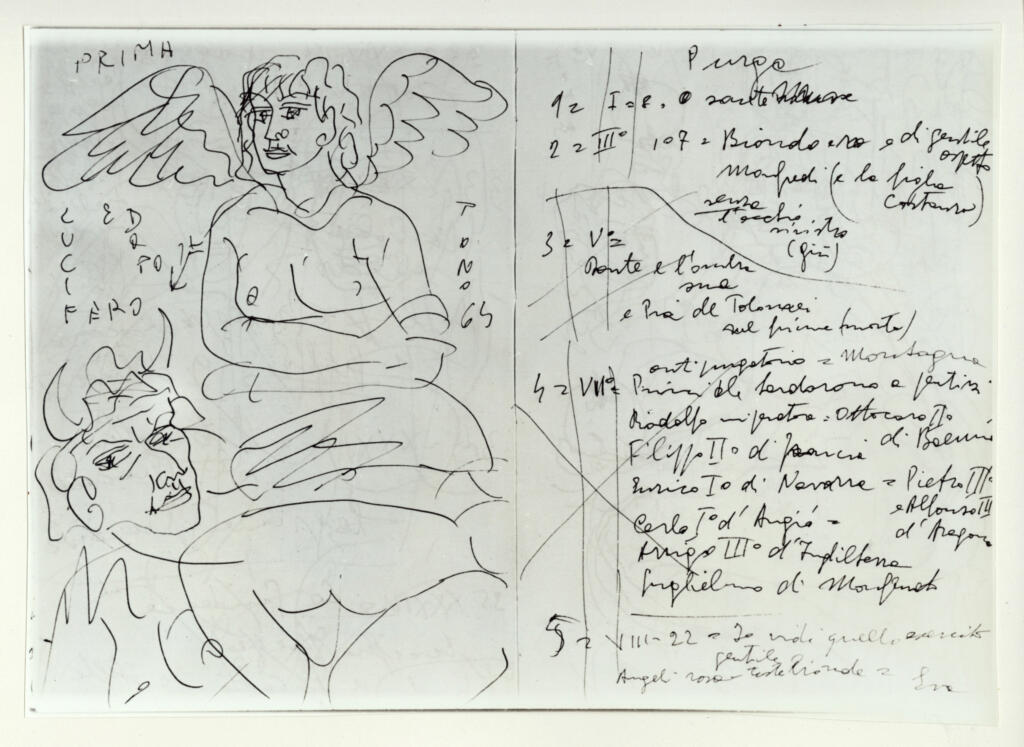 PRIMA
LUCIFERO
E DOPO
TONO 64
Purga
1 = I = e. o sante
2 = III° 107 = Biondo era e di gentile
aspetto
Manfredi (e la figlia
Costanza)
senza
l'occhio
sinistro
(giù)
3 = V° =
Dante e l'ombra
sua
e Pia de Tolomei
sul fiume (morta)
antipurgatorio = Montagna
4 = VII° = Principi
Rodolfo imperatore = Ottocaro II°
Filippo II° di Francia di Boemia
Enrico I° di Navarra = Pietro III°
e Alfonso III
Carlo I° d'Angiò = d'Aragona
Arrigo III° d'Inghilterra
Guglielmo di Monferrato
5 = VIII - 22 = Io vidi quello esercito
gentile
Angeli teste bionde =